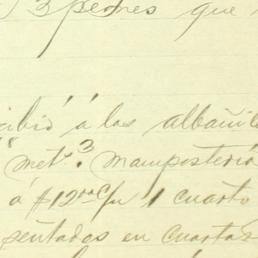 3 peones que
recibió á los albañile
" met.s 3 mampostería
á $12.00 c/u 1 cuarto
sentados en cuartas